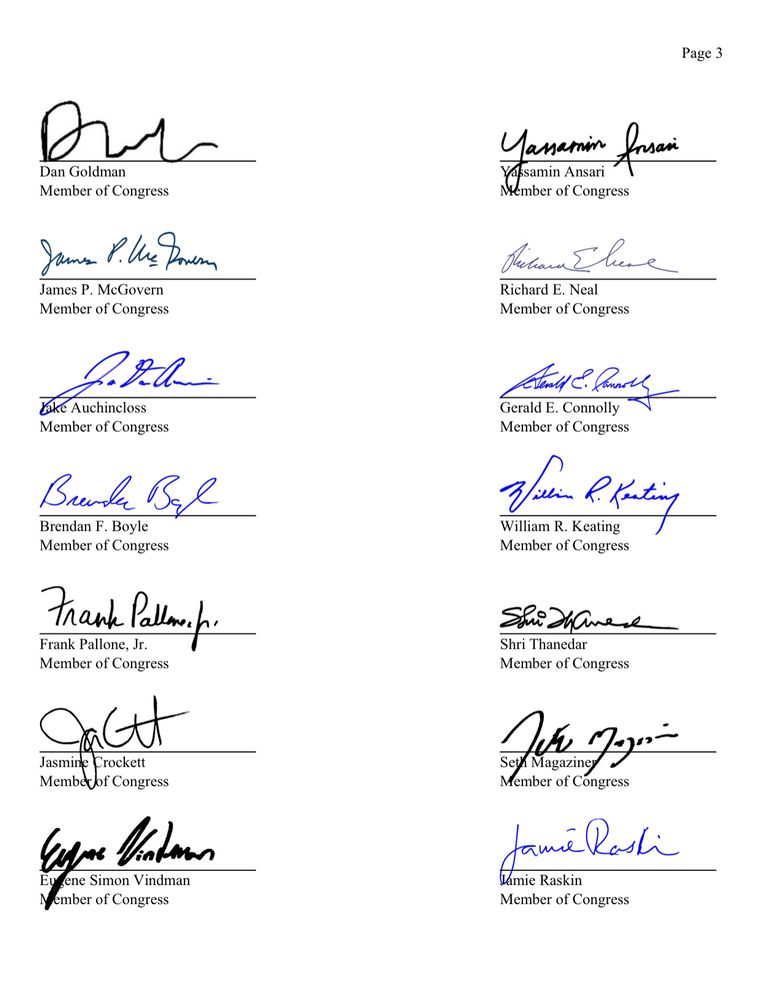 Page 3
Dan Goldman
Member of Congress
Yassamin Ansari
Yassamin Ansari
Member of Congress
James P. McGovern
James P. McGovern
Member of Congress
Richard E. Neal
Member of Congress
Jake Auchincloss
Member of Congress
Gerald E. Connolly
Gerald E. Connolly
Member of Congress
Brendan F. Boyle
Member of Congress
William R. Keating
William R. Keating
Member of Congress
Frank Pallone, Jr.
Frank Pallone, Jr.
Member of Congress
Shri Thanedar
Member of Congress
Jasmine Crockett
Member of Congress
Seth Magaziner
Member of Congress
Eugene Vindman
Eugene Simon Vindman
Member of Congress
Jamie Raskin
Jamie Raskin
Member of Congress